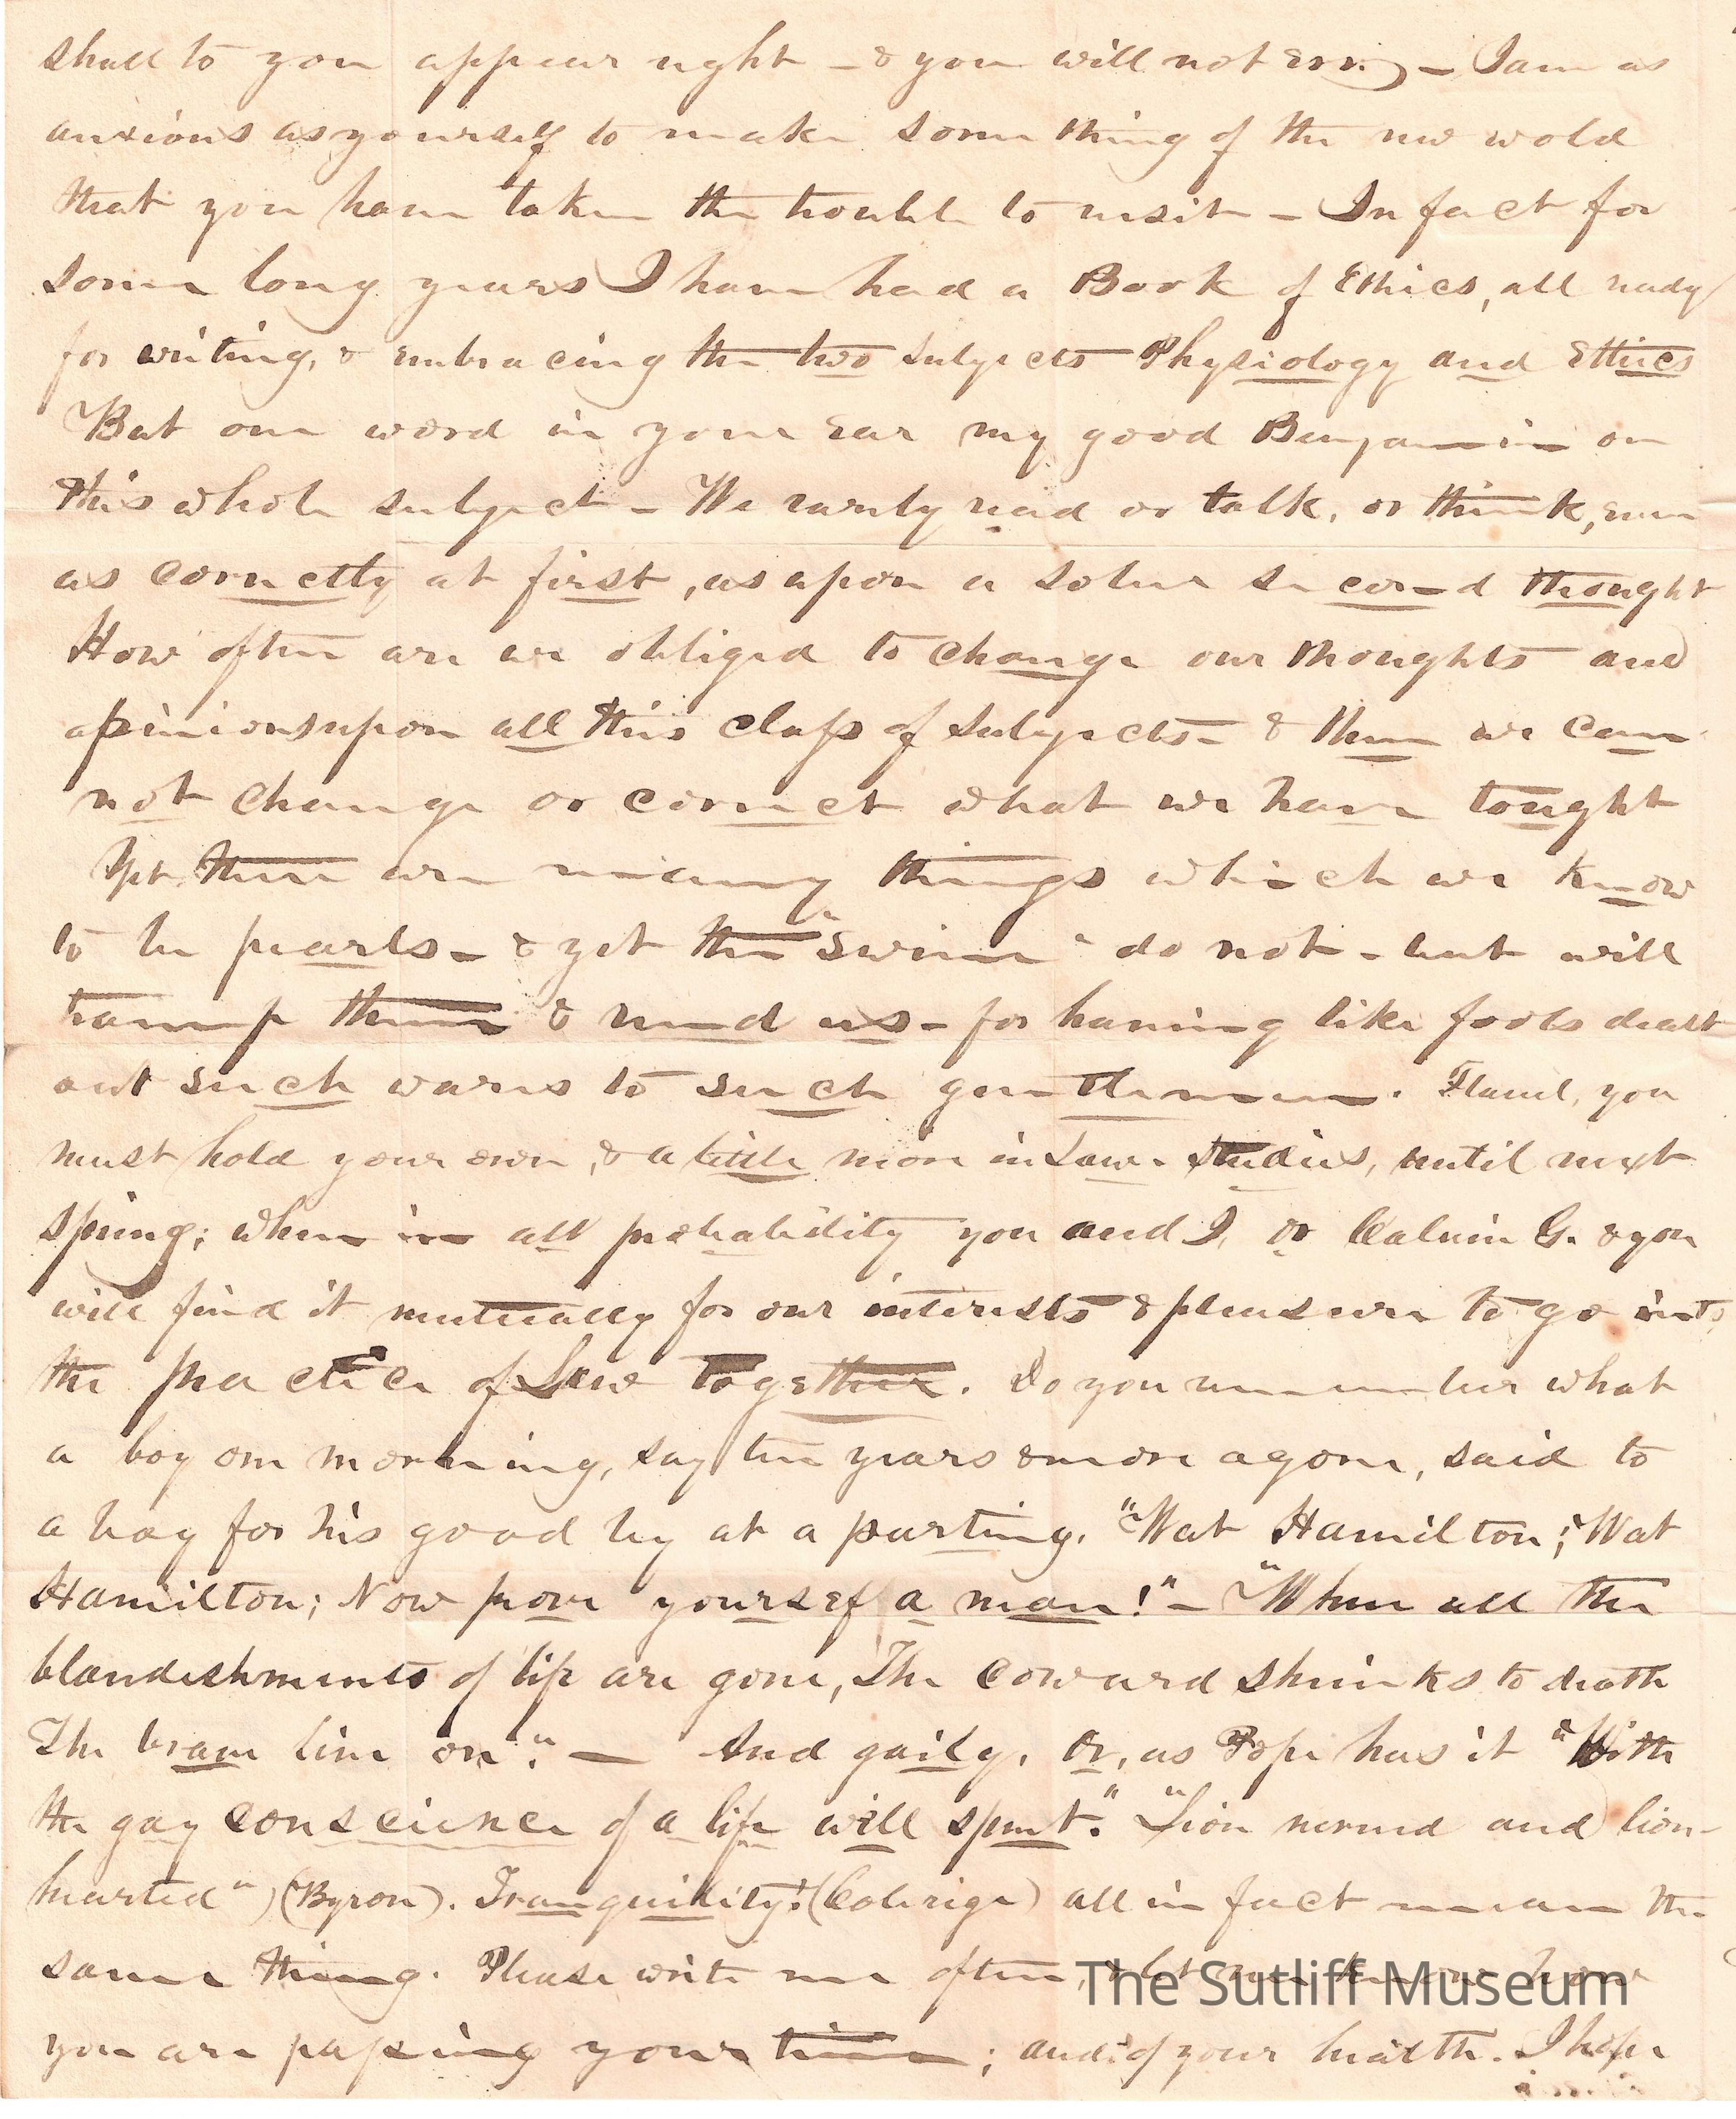 shall to you appear right – & you will not err. – I am as
anxious as yourself to make some thing of the new wold
that you have taken the trouble to visit – In fact for
some long years I have had a Book of Ethics, all ready
for writing, & embracing the two subjects Physiology and Ethics
But one word in your ear my good Benjamin on
this whole subject – We rarely read or talk, or think, even
as correctly at first, as upon a sober second thought
How often are we obliged to change our thoughts and
opinions upon all this class of subjects – & then we can
not change or correct what we have tought
Yet there are many things which we know
to be pearls – & yet the "swine" do not – but will
tramp them & rend us – for having like fools dealt
out such wares to such gentlemen. Flavel, you
must hold your own, & a little more in Law – studies, until next
spring; when in all probability you and I, or Calvin G. & you
will find it mutually for our interests & pleasure to go into
the practice of Law together. Do you remember what
a boy one morning, say ten years & more agone, said to
a boy for his good by at a parting. "Wat Hamilton; Wat
Hamilton; Now prove yourself a man!" – "When all the
blandishments of life are gone, The coward shrinks to death
The brave live on". – And gaily. Or, as Pope has it "With
the gay conscience of a life well spent." "Lion nerved and lion-
hearted") (Byron). Tranquility! (Colerige) all in fact mean the
same thing. Please write me often, & let me know how
you are passing your time; and of your health. I hope
The Sutliff Museum